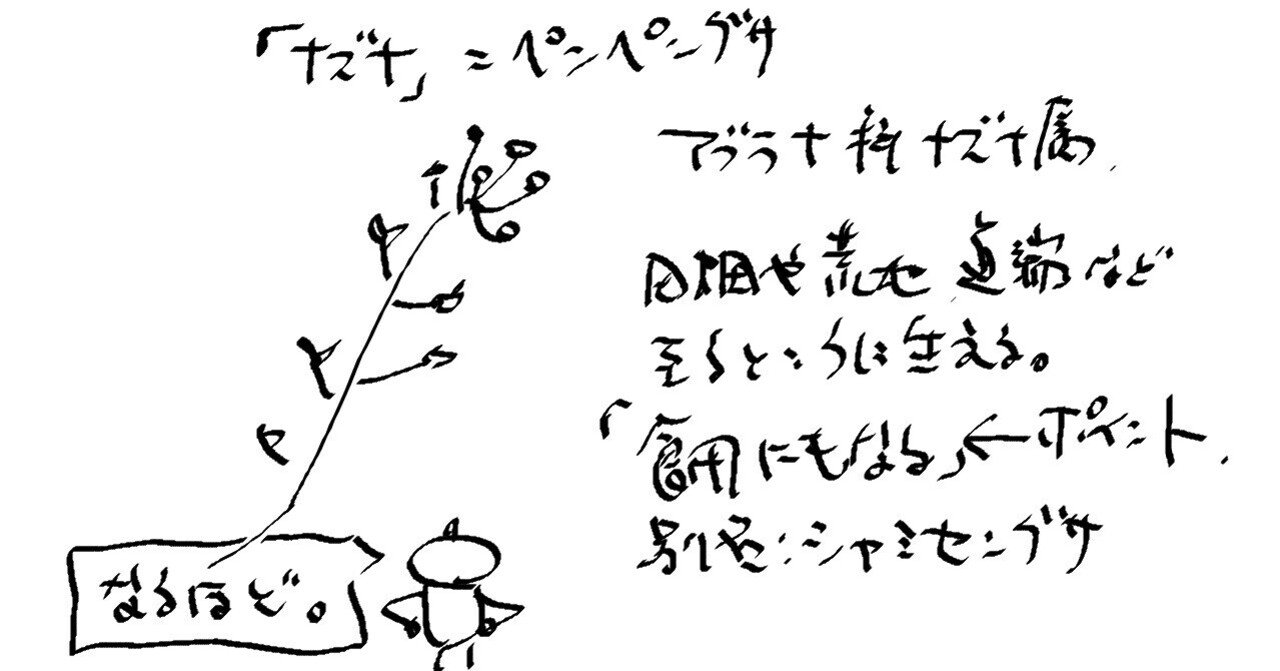 「ナズナ」=ペンペングサ
アブラナ科ナズナ属.
田畑や荒地 道端など
至るところに生える。
「食用にもなる」←ポイント.
別名:シャミセングサ
なるほど。